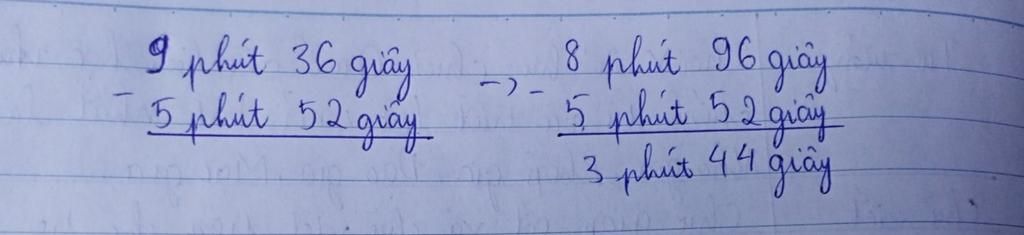 9 phút 36 giây -> 8 phút 96 giây
- 5 phút 52 giây - 5 phút 52 giây
3 phút 44 giây